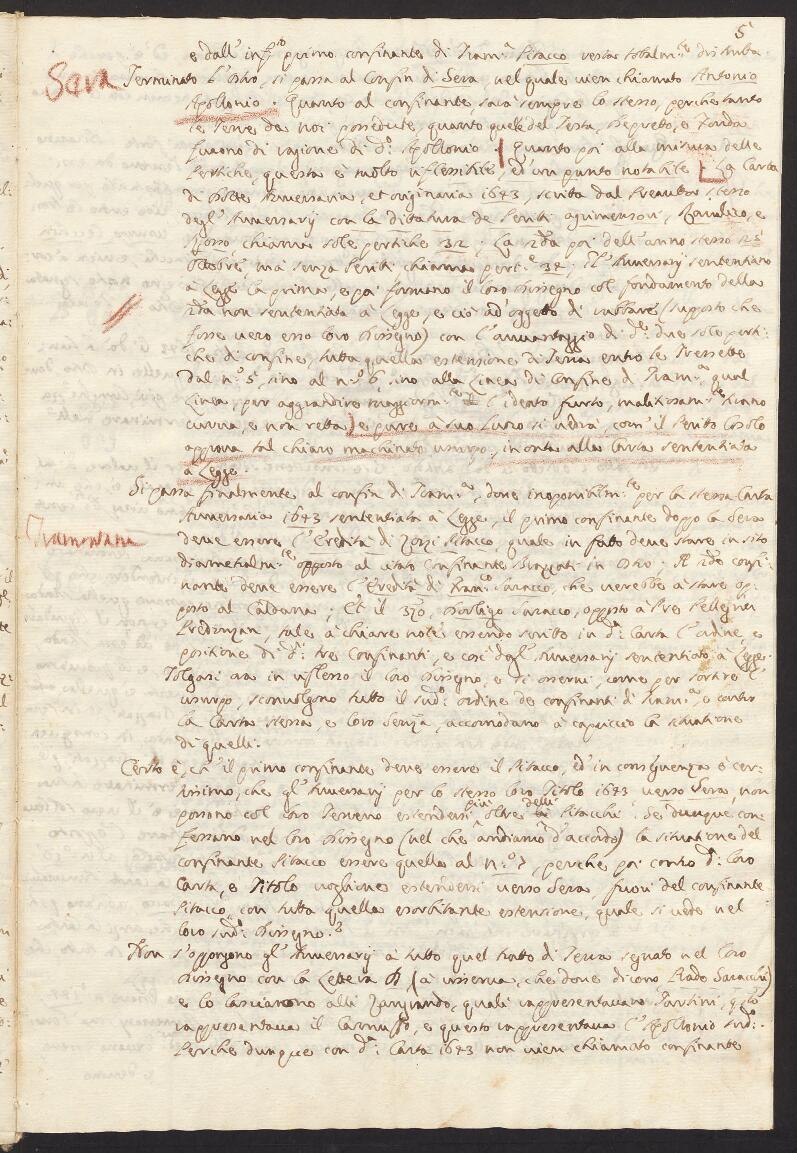 5
e dall' inf.to primo confinante di Tram.a Pitacco resta totalm.te disturba.
Sera
Terminato l'Ostro, si passa al Confin di Sera, nel quale vien chiamato Antonio
Apollonio. Quanto al confinante, sarà sempre lo stesso, perche tanto
le Terre da noi possedute, quanto quelle del Testa, Depreto, e Fonda
furono di ragione di d.o Apollonio. Quanto poi alla misura delle
Pertiche, questa è molto riflessibile, ed'un punto notabile. La Carta
di Aversaria, et originaria 1643, scritta dal stesso
degl'Aversarij con la dittatura de Periti agrimensori, e
Rosso chiama sole pertiche 32; La 2da poi dell'anno stesso
Ottobre, mà senza Periti chiama pert.e 34; Gl'Aversarij sententiano
à Legge la prima, e poi formano il loro Dissegno col fondamento della
2da non sententiata à Legge, e ciò ad'oggetto di rubbare (supposto che
fosse vero esso loro Dissegno) con l'avvantaggio di d.e due sole perti:
che di confine, tutta quella estensione di Terra entro le Tressette
dal n.o 5, sino al n.o 6, sino alla Linea di Confine di Tram.a qual
Linea, per aggrandire maggiorm.te l'ideato furto, malitiosam.te tirano
curva, e non retta) e pure à suo Luoco si vedrà, com'il Perito Cosolo
approva tal chiaro machinato usurpo, in onta alla Carta sententiata
à Legge.
Si passa finalmente al confin di Tram.a, dove inoponibilm.te per la stessa Carta
Tramontana
Aversaria 1643 sententiata à Legge, il primo confinante doppo la Sera
deve essere l'Eredità di Zorzi Pitacco, quale in fatto deve stare in sito
diametralm.te opposto al citato Confinante in Ostro; Il 2do confi:
nante deve essere l'Eredità di Fran.co Saracco, che verebbe à stare op:
posto al Caldana; Et il 3zo, Saracco, opposto à Pre Pellegrin
Predonzan, tale à chiare note essendo scritto in d.a Carta l'ordine, e
positione di d.i tre Confinanti, e così dagl'Aversarij sententiato à Legge.
Tolgasi ora in riflesso il loro Dissegno, e si osservi, come per sortire l'
usurpo, sconvolgono tutto il sud.o ordine de confinanti di Tram.a, e contro
la Carta stessa, e loro Senza, accomodano à capriccio la situatione
di quelli.
Certo è, ch'il primo confinante deve essere il Pitacco, ed'in conseguenza è cer:
tissimo, che gl'Aversarij per lo stesso loro Titolo 1643 verso Sera, non
possono col loro Terreno estendersi più oltre delli Pitacchi. Se dunque con:
fessano nel loro Dissegno (nel che andiamo d'accordo) la situatione del
confinante Pitacco essere quella al n.o 7, perche poi contro d.a loro
Carta, e Titolo vogliono estendersi verso Sera, fuori del confinante
Pitacco, con tutta quella esorbitante estensione, quale si vede nel
loro sud.o Dissegno.?
Non s'oppongono gl'Aversarij à tutto quel tratto di Terra segnato nel loro
Dissegno con la Lettera (à riserva, che dove dicono Prado Saracchi)
e lo lasciarono alli Zangrando, quali rappresentavano Tartini,
rappresentava il Carnuzzo, e questo rappresentava l'Apollonio sud.o:
Perche dunque con d.a Carta 1643 non vien chiamato confinante